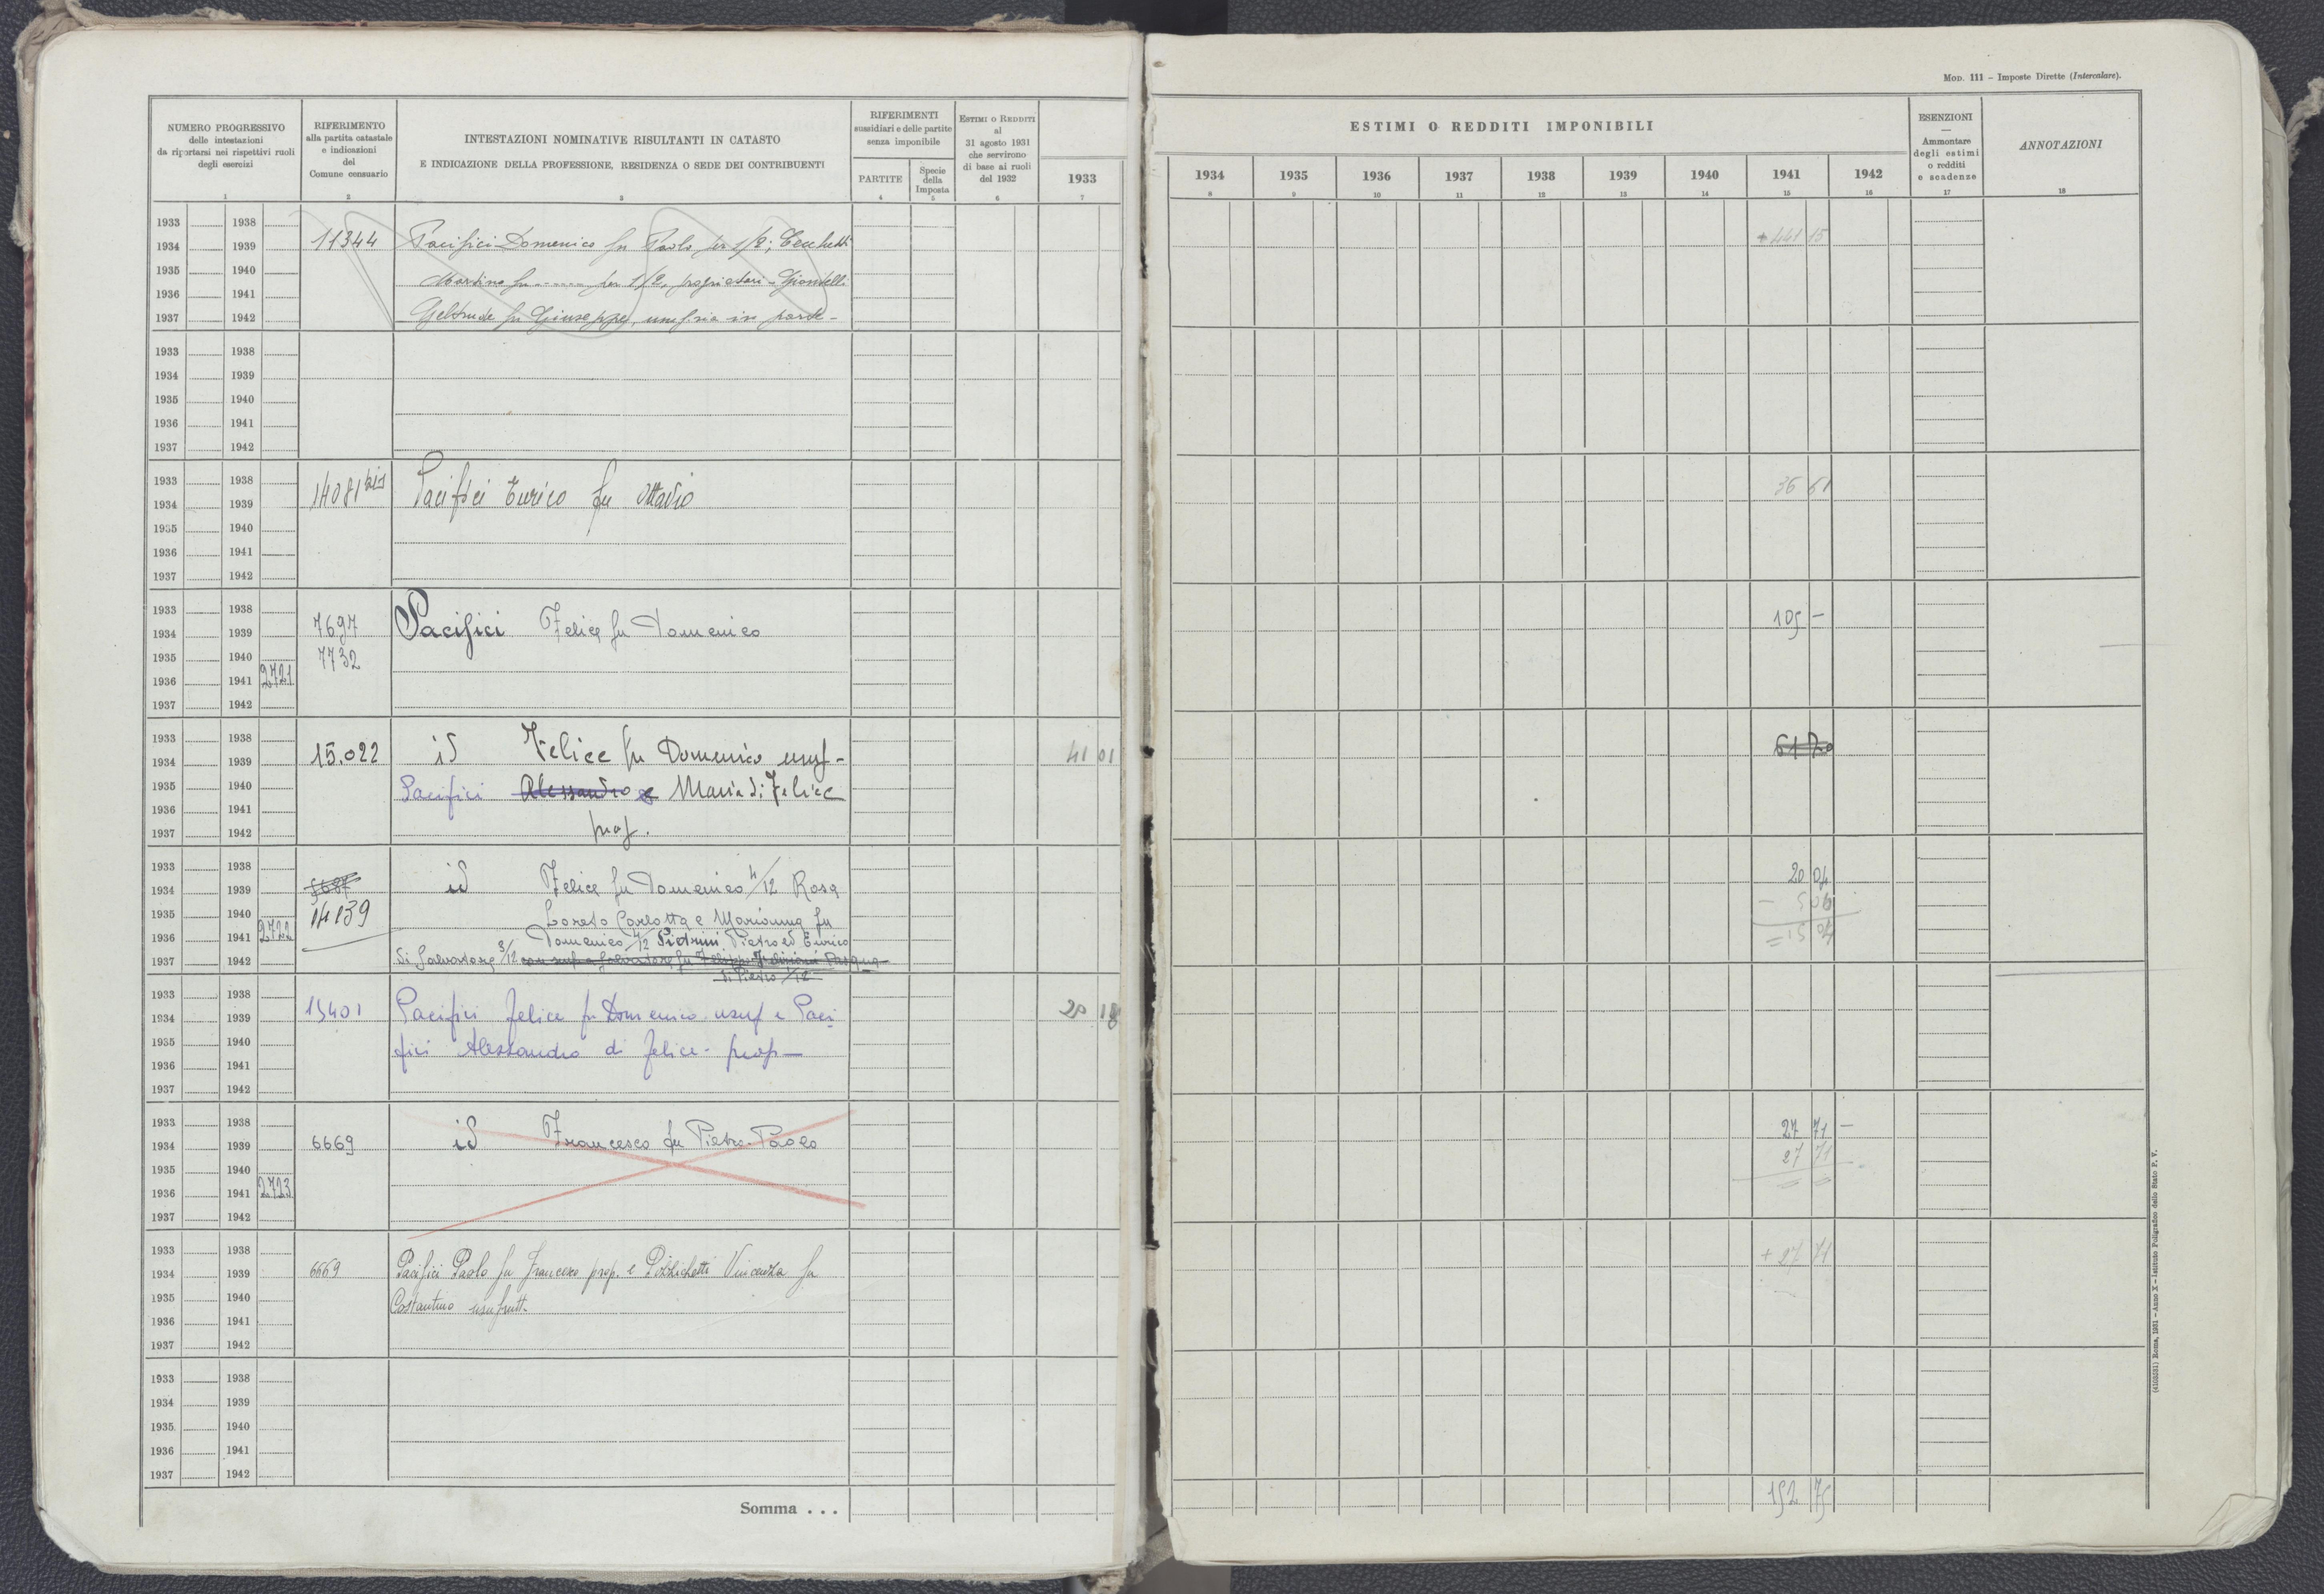 Mod. 111 – Imposte Dirette (Intercalare).
NUMERO PROGRESSIVO
delle intestazioni
da riportarsi nei rispettivi ruoli
degli esercizi
1
RIFERIMENTO
alla partita catastale
e indicazioni
del
Comune censuario
2
INTESTAZIONI NOMINATIVE RISULTANTI IN CATASTO
E INDICAZIONE DELLA PROFESSIONE, RESIDENZA O SEDE DEI CONTRIBUENTI
3
RIFERIMENTI
sussidiari e delle partite
senza imponibile
PARTITE
4
Specie
della
Imposta
5
Estimi o Redditi
al
31 agosto 1931
che servirono
di base ai ruoli
del 1932
6
1933
7
ESTIMI O REDDITI IMPONIBILI
1934 1935 1936 1937 1938 1939 1940 1941 1942
8 9 10 11 12 13 14 15 16
ESENZIONI
—
Ammontare
degli estimi
o redditi
e scadenze
17
ANNOTAZIONI
18
1933 1938
1934 1939 11344 Pacifici Domenico fu Paolo per 1/2; Cecchetti + 441 15
1935 1940 Martino fu ------ per 1/2, proprietari -
1936 1941
1937 1942 Geltrude fu Giuseppe, in parte -
1933 1938
1934 1939
1935 1940
1936 1941
1937 1942
1933 1938
1934 1939 14081 bis Pacifici Enrico fu Ottavio 36 61
1935 1940
1936 1941
1937 1942
1933 1938
1934 1939 7697 Pacifici Felice fu Domenico 105 —
1935 1940 7732
1936 1941 2721
1937 1942
1933 1938
1934 1939 15.022 id Felice fu Domenico usuf - 41 01 61 70
1935 1940 Pacifici Alessandro e Maria di Felice
1936 1941
1937 1942 prop.
1933 1938
1934 1939 5687 id Felice fu Domenico 4/12 Rosa 20 04
1935 1940 14139 Loreto Carlotta e Marianna fu - 5 00
1936 1941 2722 Domenico 4/12 Pietrini Pietro ed Enrico = 15 04
1937 1942 di Salvatore 3/12 con usuf a Salvatore fu
di Pietro 1/12
1933 1938
1934 1939 15401 Pacifici Felice fu Domenico usuf e Paci- 20 18
1935 1940 fici Alessandro di Felice - prop —
1936 1941
1937 1942
1933 1938
1934 1939 6669 id Francesco fu Pietro-Paolo 27 71 —
1935 1940 27 71
1936 1941 2723 = =
1937 1942
1933 1938
1934 1939 6669 Pacifici Paolo fu Francesco prop. e Pizzichetti Vincenza fu + 27 71
1935 1940 Costantino usufrutt.
1936 1941
1937 1942
1933 1938
1934 1939
1935 1940
1936 1941
1937 1942
Somma . . . 152 75
(4103251) Roma, 1931 – Anno X – Istituto Poligrafico dello Stato P. V.